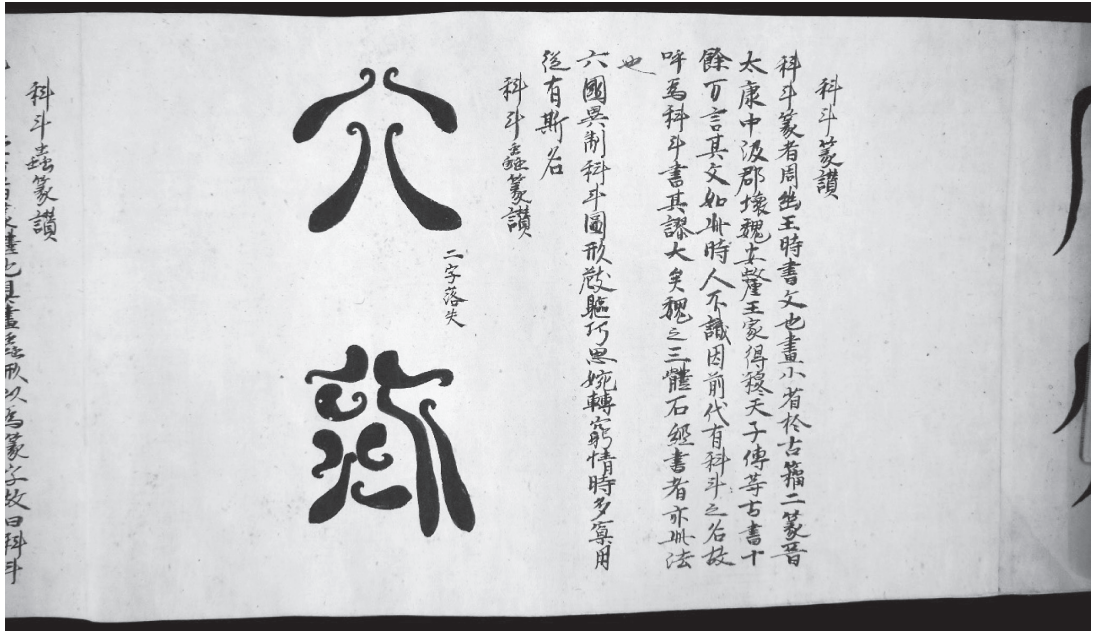 科斗篆讃
科斗篆者周幽王時書文也畫小省於古籀二篆晉
太康中汲郡懷魏安釐王家得穆天子傳等古書十
餘万言其文如此時人不識因前代有科斗之名故
呼為科斗書其謬大矣魏之三體石經書者亦此法
也
六國異制科斗圖形巧思婉轉窮情時多寘用
從有斯名
科斗蟲篆讃
二字落失
科斗蟲篆讃
畫也真畫蟲形以為篆字故曰科斗